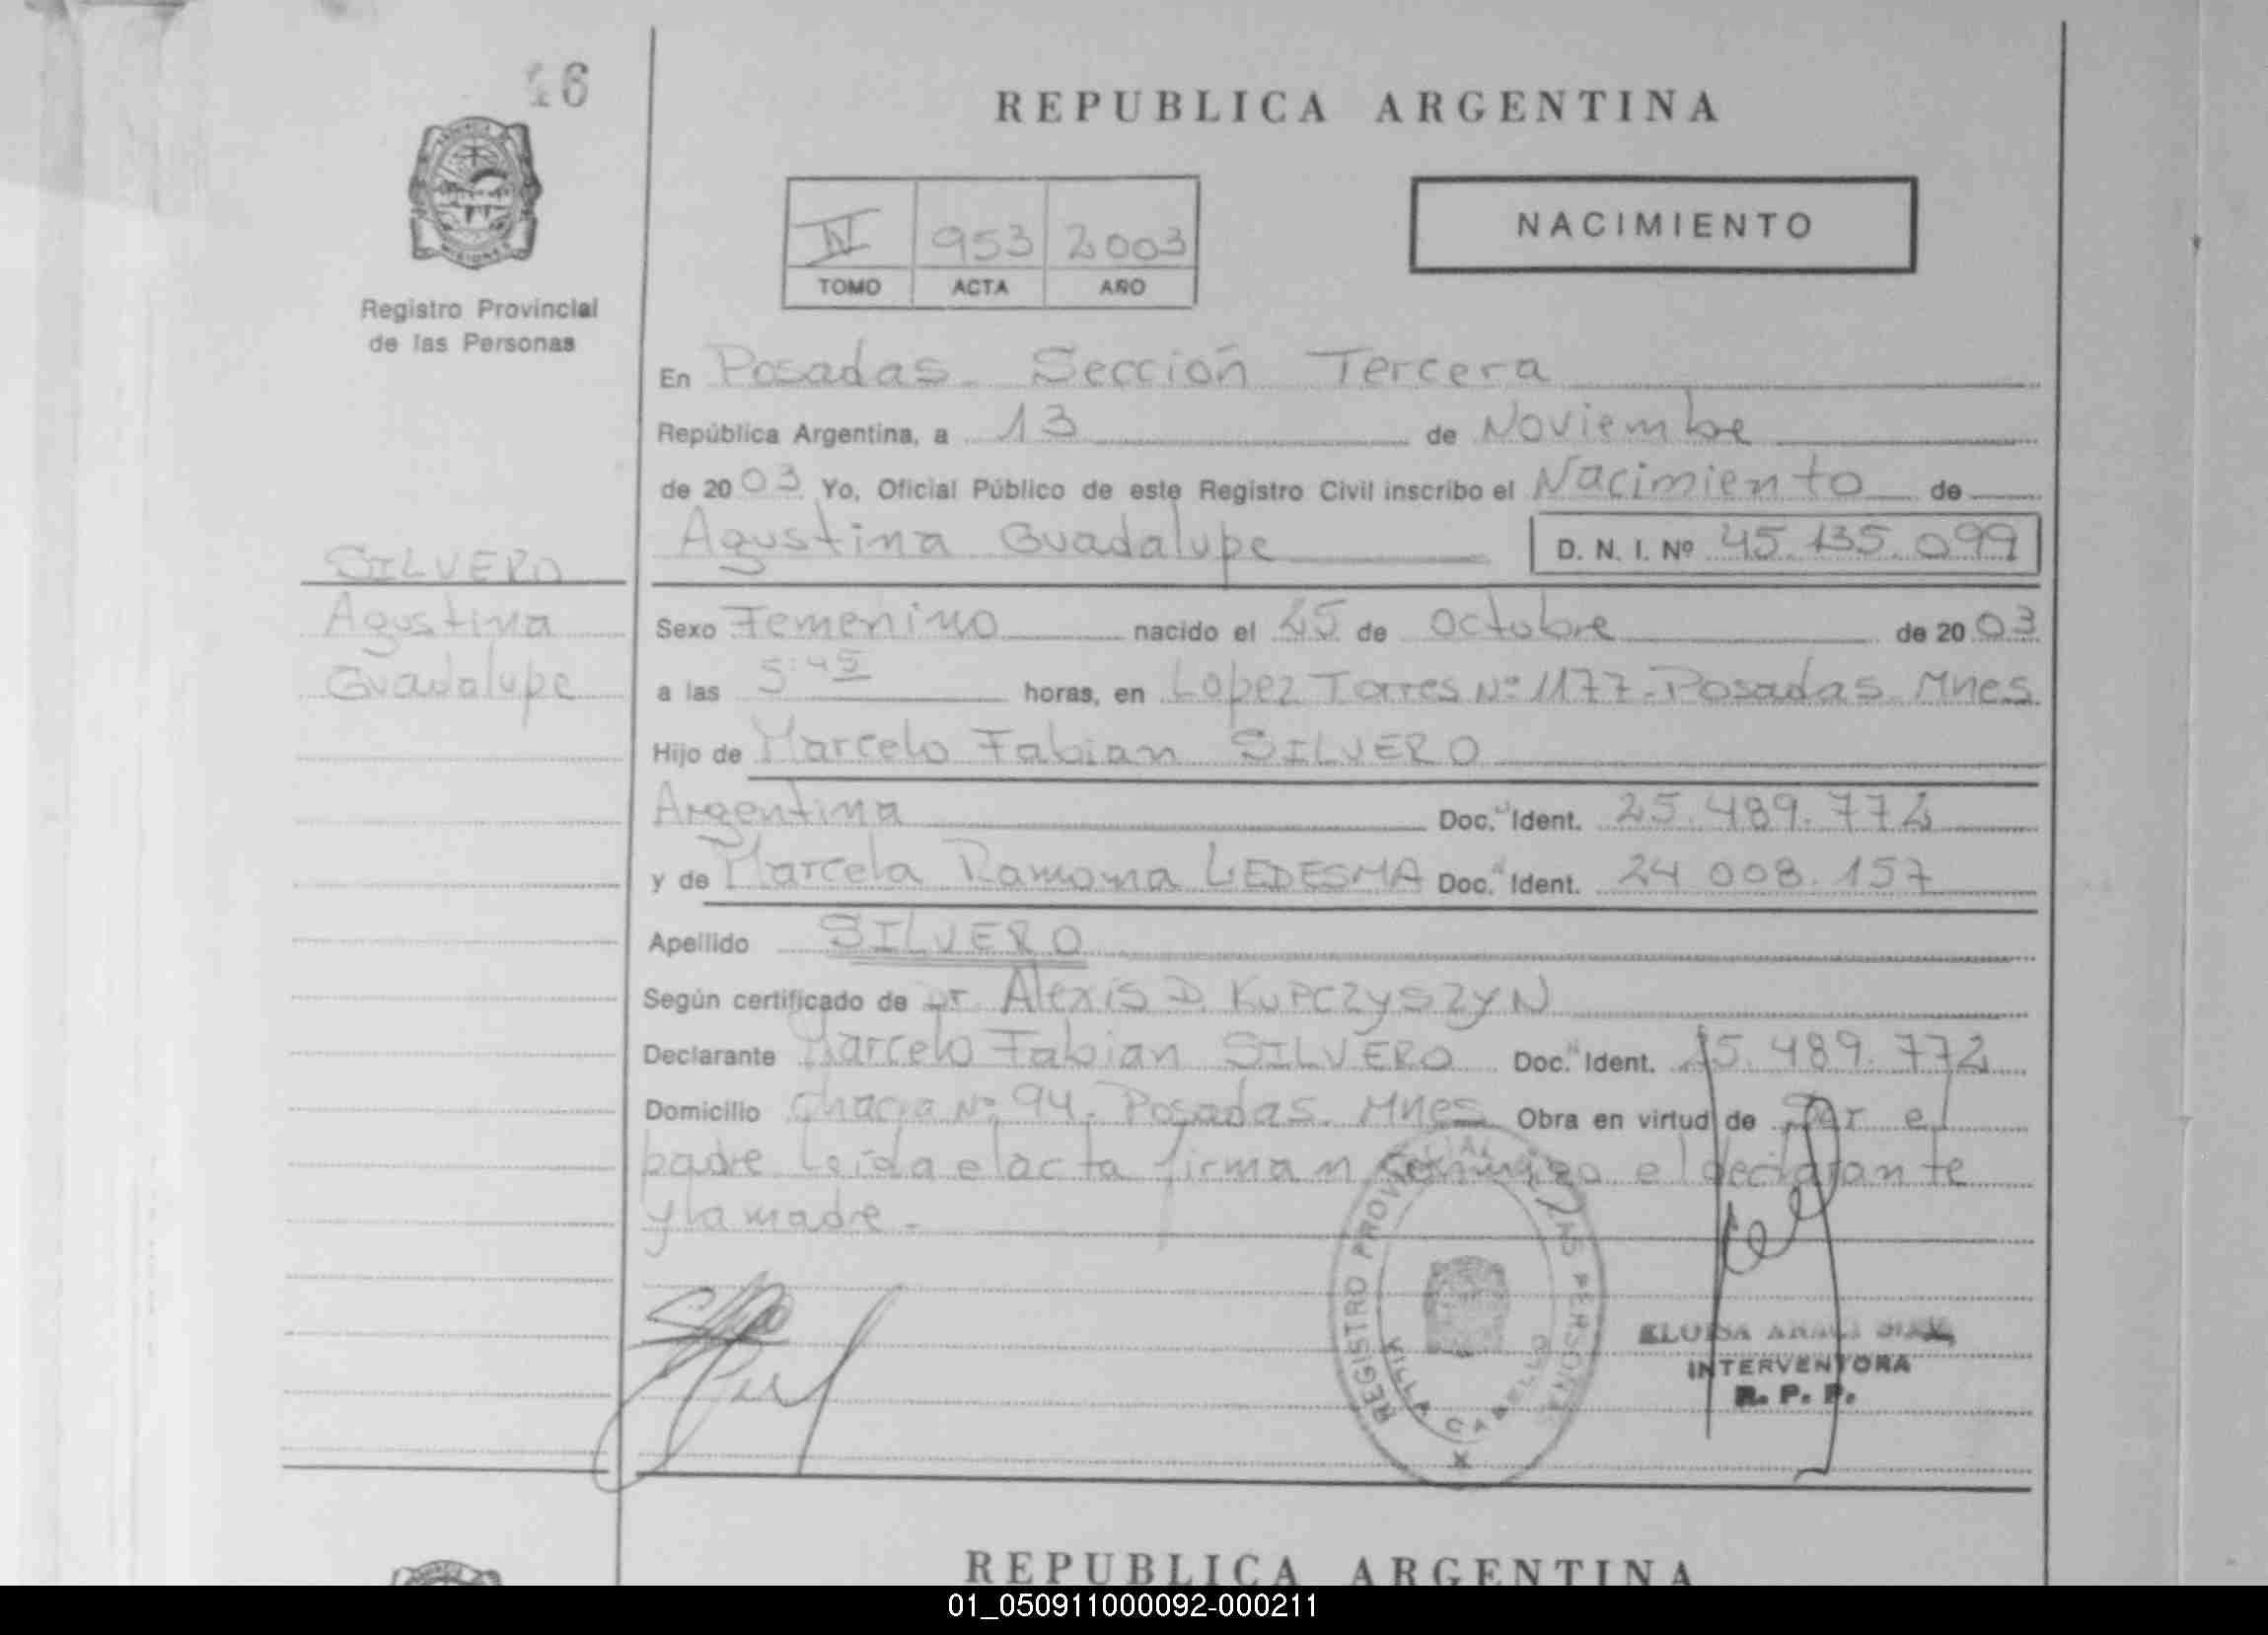 16
REPUBLICA ARGENTINA
IV 953 2003
TOMO ACTA AÑO
NACIMIENTO
Registro Provincial
de las Personas
En Posadas. Sección Tercera
República Argentina, a 13 de Noviembre
de 2003 Yo, Oficial Público de este Registro Civil inscribo el Nacimiento de
Agustina Guadalupe D. N. I. Nº 45.135.099
SILVERO
Agustina
Guadalupe
Sexo Femenino nacido el 25 de octubre de 2003
a las 5:45 horas, en Lopez Torres Nº 1177. Posadas Mnes
Hijo de Marcelo Fabian SILVERO
Argentina Doc. Ident. 25.489.772
y de Marcela Ramona LEDESMA Doc. Ident. 24 008.157
Apellido SILVERO
Según certificado de Dr Alexis D. KUPCZYSZYN
Declarante Marcelo Fabian SILVERO Doc. Ident. 25.489.772
Domicilio Chacra Nº 94. Posadas. Mnes Obra en virtud de Ser el
padre Leida el acta firman conmigo el declarante
y la madre.-
REGISTRO PROVINCIAL DE LAS PERSONAS
VILLA CABELLO
ELOISA
INTERVENTORA
R. P. P.
REPUBLICA ARGENTINA
01_050911000092-000211